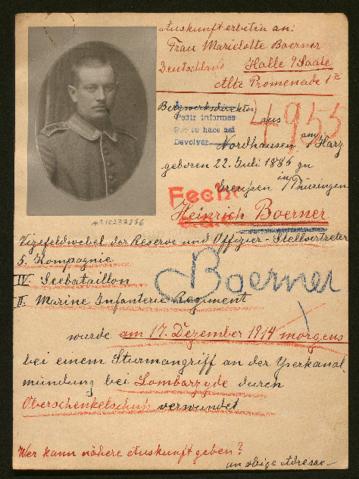 Auskunft erbeten an:
Frau Marielotte Boerner
Deutschland Halle a/Saale
Alte Promenade 1a
Bergwerksdirektor aus
Pedir informes
Devolver
4955
Nordhausen am Harz
geboren 22. Juli 1885 zu
in Thüringen
Fecha
Heinrich Boerner
Vizefeldwebel der Reserve und Offizier-Stellvertreter
5. Kompagnie
IV. Seebataillon
Boerner
II. Marine Infanterie Regiment
wurde am 17. Dezember 1914 morgens
bei einem Sturmangriff an der Yserkanal
mündung bei Lombarzyde durch
Oberschenkelschuss verwundet
Wer kann nähere Auskunft geben?
an obige Adresse